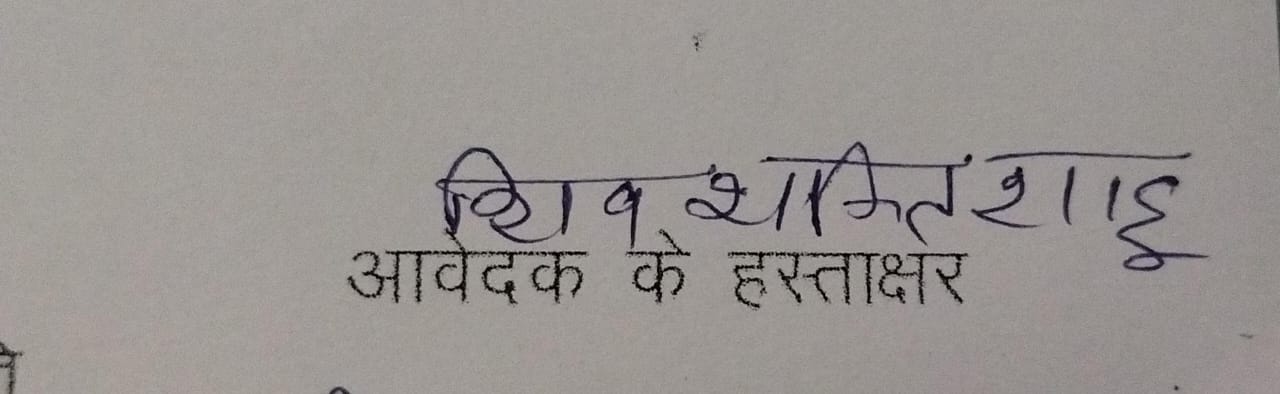 शिव शक्ति शाहू
आवेदक के हस्ताक्षर